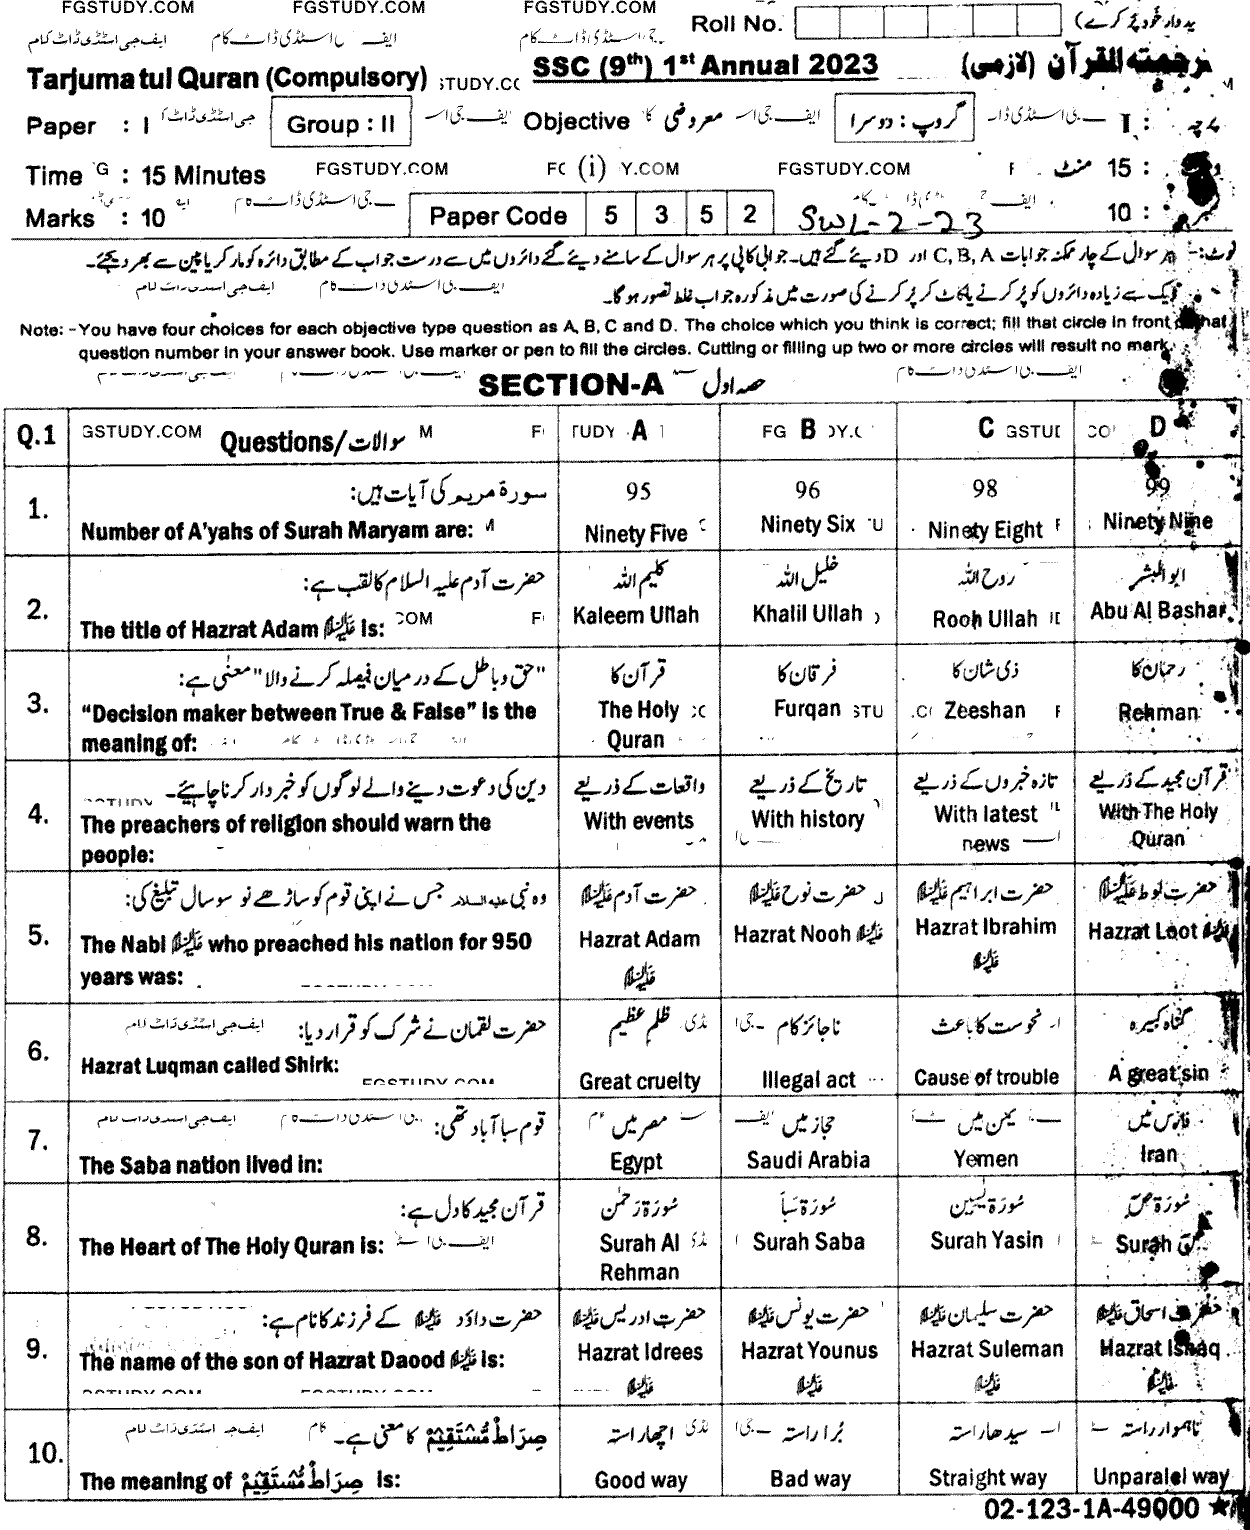 FGSTUDY.COM FGSTUDY.COM FGSTUDY.COM Roll No.
ایف جی اسٹڈی ڈاٹ کام
Tarjumatul Quran (Compulsory) SSC (9th) 1st Annual 2023 ترجمتہ القرآن (لازمی)
Paper : I Group : II Objective معروضی گروپ : دوسرا پرچہ : I
Time : 15 Minutes FGSTUDY.COM (i) FGSTUDY.COM وقت : 15 منٹ
Marks : 10 Paper Code 5 3 5 2 SWL-2-23 نمبر : 10
نوٹ:- ہر سوال کے چار ممکنہ جوابات C, B, A اور D دیئے گئے ہیں۔ جوابی کاپی پر ہر سوال کے سامنے دیئے گئے دائروں میں سے درست جواب کے مطابق دائرہ کو مارکر یا پین سے بھر دیجئے۔
ایک سے زیادہ دائروں کو پُر کرنے یا کاٹ کر پُر کرنے کی صورت میں مذکورہ جواب غلط تصور ہوگا۔
Note: - You have four choices for each objective type question as A, B, C and D. The choice which you think is correct; fill that circle in front of that
question number in your answer book. Use marker or pen to fill the circles. Cutting or filling up two or more circles will result no mark.
SECTION-A حصہ اول
Q.1 Questions/سوالات A B C D
1. سورۃ مریم کی آیات ہیں: 95 96 98 99
Number of A'yahs of Surah Maryam are: Ninety Five Ninety Six Ninety Eight Ninety Nine
2. حضرت آدم علیہ السلام کا لقب ہے: کلیم اللہ خلیل اللہ روح اللہ ابوالبشر
The title of Hazrat Adam علیہ السلام is: Kaleem Ullah Khalil Ullah Rooh Ullah Abu Al Bashar
3. "حق و باطل کے درمیان فیصلہ کرنے والا" معنٰی ہے: قرآن کا فرقان کا ذی شان کا رحمان کا
"Decision maker between True & False" is the The Holy Furqan Zeeshan Rehman
meaning of: Quran
4. دین کی دعوت دینے والے لوگوں کو خبردار کرنا چاہیئے۔ واقعات کے ذریعے تاریخ کے ذریعے تازہ خبروں کے ذریعے قرآن مجید کے ذریعے
The preachers of religion should warn the With events With history With latest With The Holy
people: news Quran
5. وہ نبی علیہ السلام جس نے اپنی قوم کو ساڑھے نو سو سال تبلیغ کی: حضرت آدم علیہ السلام حضرت نوح علیہ السلام حضرت ابراہیم علیہ السلام حضرت لوط علیہ السلام
The Nabi علیہ السلام who preached his nation for 950 Hazrat Adam علیہ السلام Hazrat Nooh علیہ السلام Hazrat Ibrahim علیہ السلام Hazrat Loot علیہ السلام
years was:
6. حضرت لقمان نے شرک کو قرار دیا: ظلم عظیم ناجائز کام نحوست کا باعث گناہ کبیرہ
Hazrat Luqman called Shirk: Great cruelty Illegal act Cause of trouble A great sin
7. قوم سبا آباد تھی: مصر میں حجاز میں یمن میں فارس میں
The Saba nation lived in: Egypt Saudi Arabia Yemen Iran
8. قرآن مجید کا دل ہے: سُورۃ رَحمٰن سُورَۃ سَبَا سُورَۃ یٰسین سُورَۃ صٓ
The Heart of The Holy Quran is: Surah Al Surah Saba Surah Yasin Surah
Rehman
9. حضرت داؤد علیہ السلام کے فرزند کا نام ہے: حضرت ادریس علیہ السلام حضرت یونس علیہ السلام حضرت سلیمان علیہ السلام حضرت اسحاق علیہ السلام
The name of the son of Hazrat Daood علیہ السلام is: Hazrat Idrees علیہ السلام Hazrat Younus علیہ السلام Hazrat Suleman علیہ السلام Hazrat Ishaq علیہ السلام
10. صِرَاطٌ مُّسْتَقِيْمٌ کا معنی ہے۔ اچھا راستہ بُرا راستہ سیدھا راستہ ناہموار راستہ
The meaning of صِرَاطٌ مُّسْتَقِيْمٌ is: Good way Bad way Straight way Unparalel way
02-123-1A-49000 ★